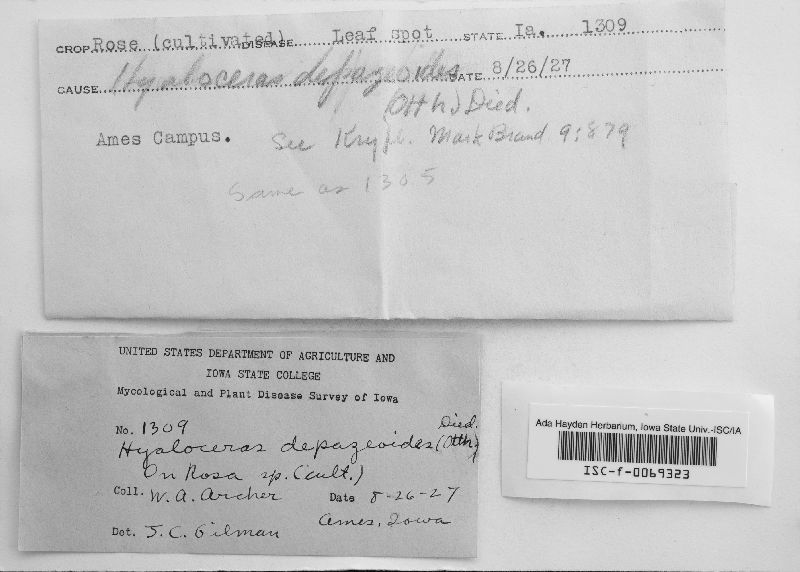 CROP Rose (cultivated) DISEASE Leaf spot STATE Ia. 1309
CAUSE Hyaloceras depazeoides DATE 8/26/27
(Otth) Died.
Ames Campus. See Krypt. Mark Brand 9:879
Same as 1305
UNITED STATES DEPARTMENT OF AGRICULTURE AND
IOWA STATE COLLEGE
Mycological and Plant Disease Survey of Iowa
No. 1309
Hyaloceras depazeoides (Otth) Died.
On Rosa sp. (cult.)
Coll. W. A. Archer Date 8-26-27
Ames, Iowa
Det. J. C. Gilman
Ada Hayden Herbarium, Iowa State Univ.-ISC/IA
ISC-f-0069323